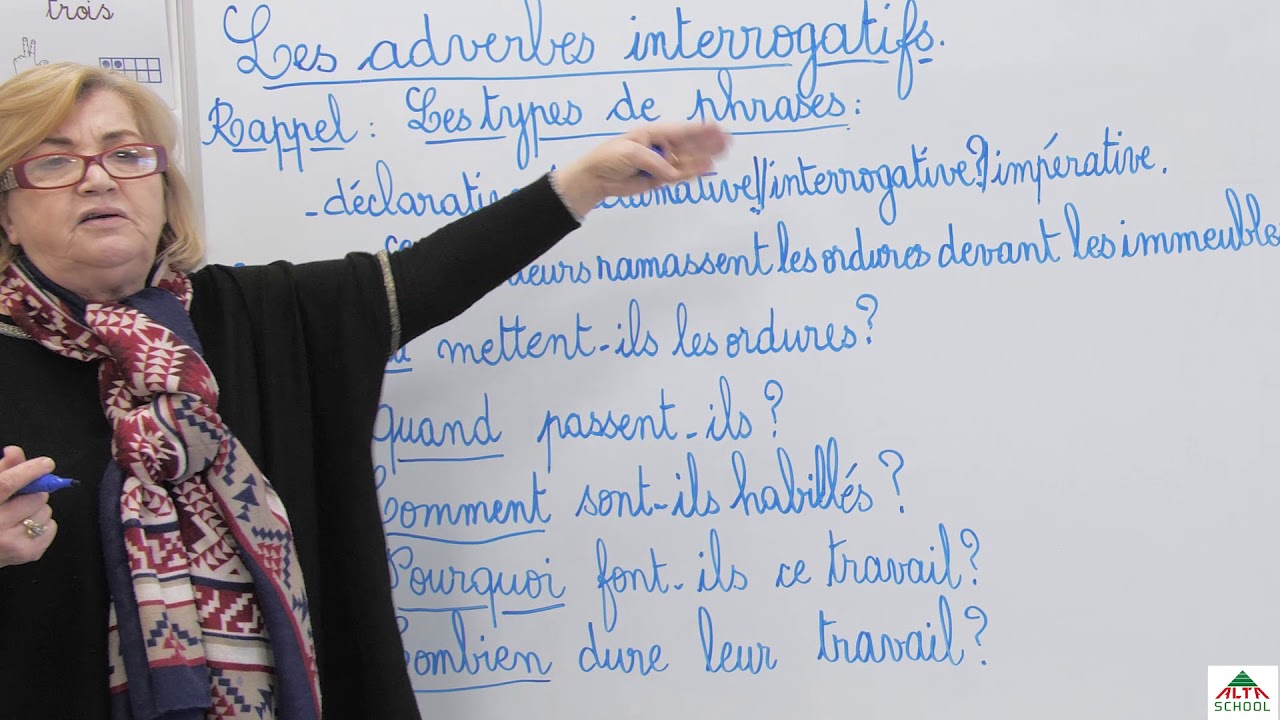 trois
Les adverbes interrogatifs.
Rappel : Les types de phrases :
- déclarative / interrogative? / impérative.
ramassent les ordures devant les immeubles
mettent-ils les ordures?
Quand passent-ils?
Comment sont-ils habillés?
Pourquoi font-ils ce travail?
Combien dure leur travail?
ALTA
SCHOOL